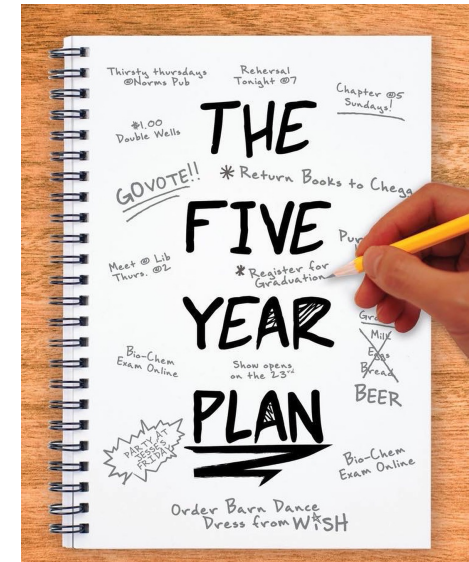 Thirsty thursdays
@Norms Pub
Rehersal
Tonight @7
Chapter @5
Sundays!
$1.00
Double Wells
THE
GO VOTE!!
* Return Books to Chegg
FIVE
Meet @ Lib
Thurs. @2
* Register for
Graduation
YEAR
Milk
Eggs
Bread
BEER
Bio-Chem
Exam Online
Show opens
on the 23rd
PLAN
PARTY AT
JESSE'S
FRIDAY
Bio-Chem
Exam Online
Order Barn Dance
Dress from WISH